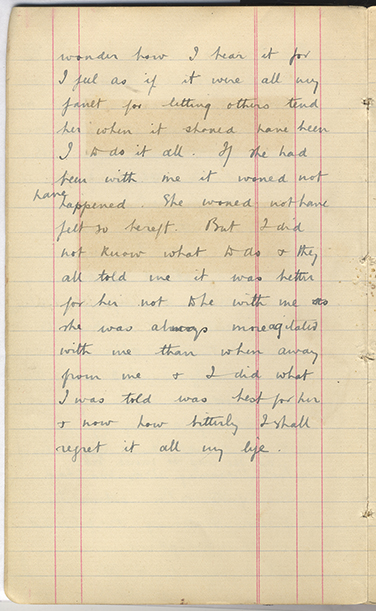 wonder how I bear it for
I feel as if it were all my
fault for letting others tend
her when it should have been
I to do it all. If she had
been with me it would not
have happened. She would not have
felt so bereft. But I did
not know what to do & they
all told me it was better
for her not to be with me as
she was always more agitated
with me than when away
from me & I did what
I was told was best for her
& now how bitterly I shall
regret it all my life.